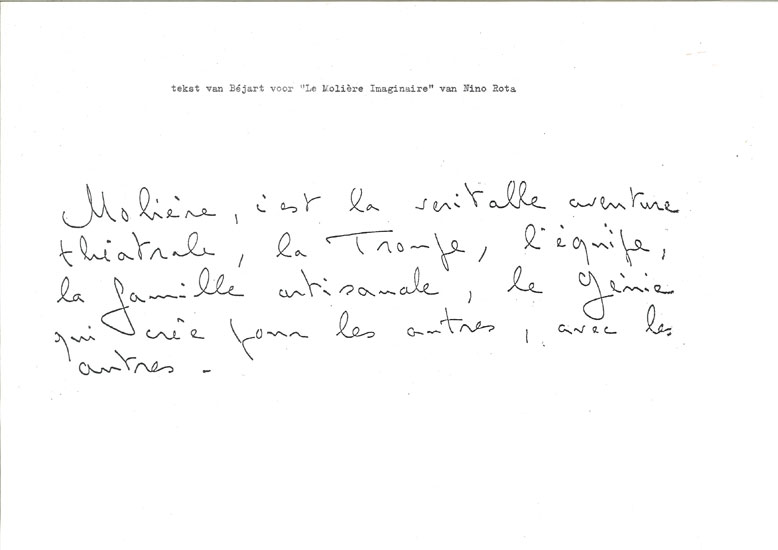 tekst van Béjart voor "Le Molière Imaginaire" van Nino Rota
Molière, c'est la veritable aventure
théatrale, la Troupe, l'équipe,
la famille artisanale, le génie
qui crée pour les autres, avec les
autres -